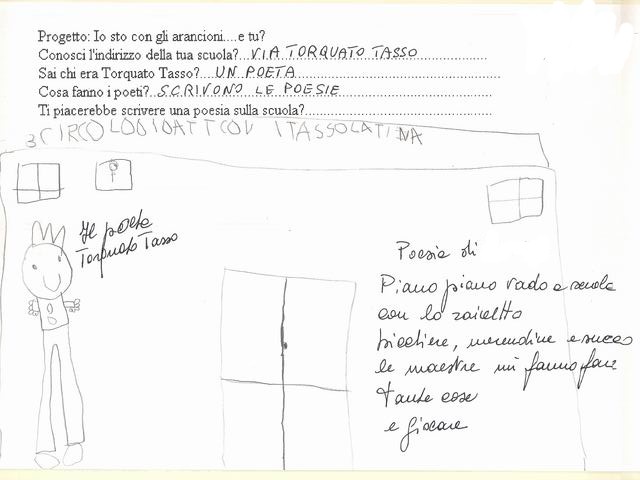 Progetto: Io sto con gli arancioni....e tu?
Conosci l'indirizzo della tua scuola?...VIA TORQUATO TASSO
Sai chi era Torquato Tasso?...UN POETA
Cosa fanno i poeti?...SCRIVONO LE POESIE
Ti piacerebbe scrivere una poesia sulla scuola?
3 CIRCOLODIDATTCOV ITASSOLATINA
Il poeta
Torquato Tasso
Poesia di
Piano piano vado a scuola
con lo zainetto
bicchiere, merendine e succo
le maestre mi fanno fare
tante cose
e giocare